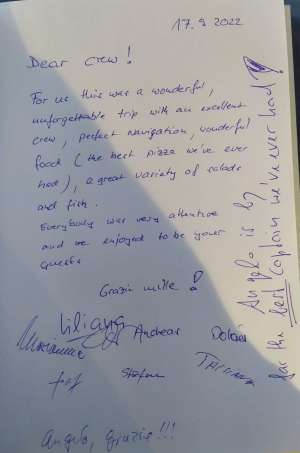 17.9.2022
Dear crew!
For us this was a wonderful,
unforgettable trip with an excellent
crew, perfect navigation, wonderful
food (the best pizza we've ever
had), a great variety of salads
and fish.
Everybody was very attentive
and we enjoyed to be your
guests
Grazie mille!
Liliana
Marianne Andreas
Stefan
Angelo, Grazie!!!
Angelo is by
far the best captain we've ever had!